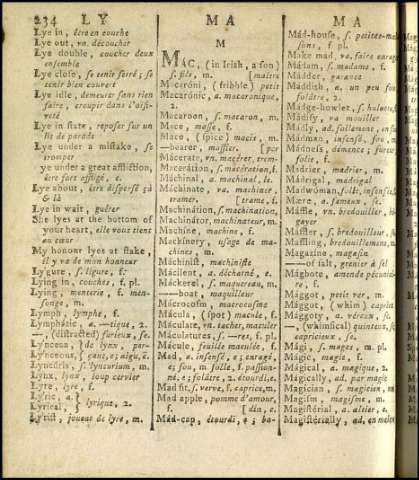 234 L Y
Lye in, être en couche
Lye out, va. découcher
Lye double, coucher deux
ensemble
Lye close, se tenir serré; se
tenir bien couvert
Lye idle, demeurer sans rien
faire, croupir dans l'oisi-
veté
Lye in state, reposer sur un
lit de parade
Lye under a mistake, se
tromper
ye under a great affliction,
être fort affligé, e.
Lye about, être dispersé çà
& là
Lye in wait, guêter
She lyes at the bottom of
your heart, elle vous tient
au cœur
My honour lyes at stake,
il y va de mon honneur
Lying in, couches, f. pl.
Lying, menterie, f. men-
songe, m.
Lymph, lymphe, f.
Lymphátic, a. —tique, 2.
—, (distracted) furieux, se.
Lyre, lyre, f.
Lyric, a.
Lyrical, lyrique, 2.
Lyrist, joueur de lyre, m.
M A
M
MAC, (in Irish, a son)
s. fils, m.
Macaróni, a (fribble) petit
Macarónic, a. macaronique,
2.
Macaroon, s. macaron, m.
Mace, masse, f.
Mace, (spice) macis, m.
—bearer, massier,
Mácerate, vn. macérer, trem-
Macerátion, s. macération, f.
Máchinal, a. machinal, le.
Máchinate, va. machiner,
tramer. [trame, f.
Machinátion, s. machination,
Machinátor, machinateur, m.
Machine, machine, f.
Machinery, usage de ma-
chines, m.
Máchinist, machiniste
Mácilent, a. décharné, e.
Máckerel, s. maquereau, m.
—boat, maquilleur
Mácrocosm, macrocosme
Mácula, (spot) macule, f.
Máculate, vn. tacher, maculer
Máculatures, s. —res, f. pl.
Mácule, feuille maculée, f.
Mad, a. insensé, e; enragé,
e; fou, m. folle, f. passion-
né, e; folâtre, 2. étourdi, e.
Mad fit, s. verve, f. caprice, m.
Mad apple, pomme d'amour,
f.
Mad-cap, étourdi, e; ba-
M A
Mád-house, s. petites-mai-
sons, f. pl.
Make mad, va. faire enrager
Mádam, s. madame, f.
Mádder, garance
Máddish, a. un peu fou
folâtre, 2.
Mádify, va. mouiller
Mádly, ad. follement,
Mádman, insensé, fou, m.
Mádness, démence; fureur
folie, f.
Madrier, madrier, m.
Mádrigal, madrigal
Madwóman, folle, insensée
Máffle, vn. bredouiller,
Máffler, s. bredouilleur,
Máffling, bredouillement,
Magazíne, magasin
—of salt, grenier à sel
Mágbote, amende pécuniai-
re, f.
Mágget, petit ver, m.
Mággot, (whim) caprice
Mággoty, a. véreux, se.
—, (whimsical) quinteux, se
capricieux, se.
Mági, s. mages, m. pl.
Mágic, magie, f.
Mágical, a. magique, 2.
Mágically, ad. par magie
Magícian, s. magicien,
Magistérial, a. altier, e.
Magistérially, ad.